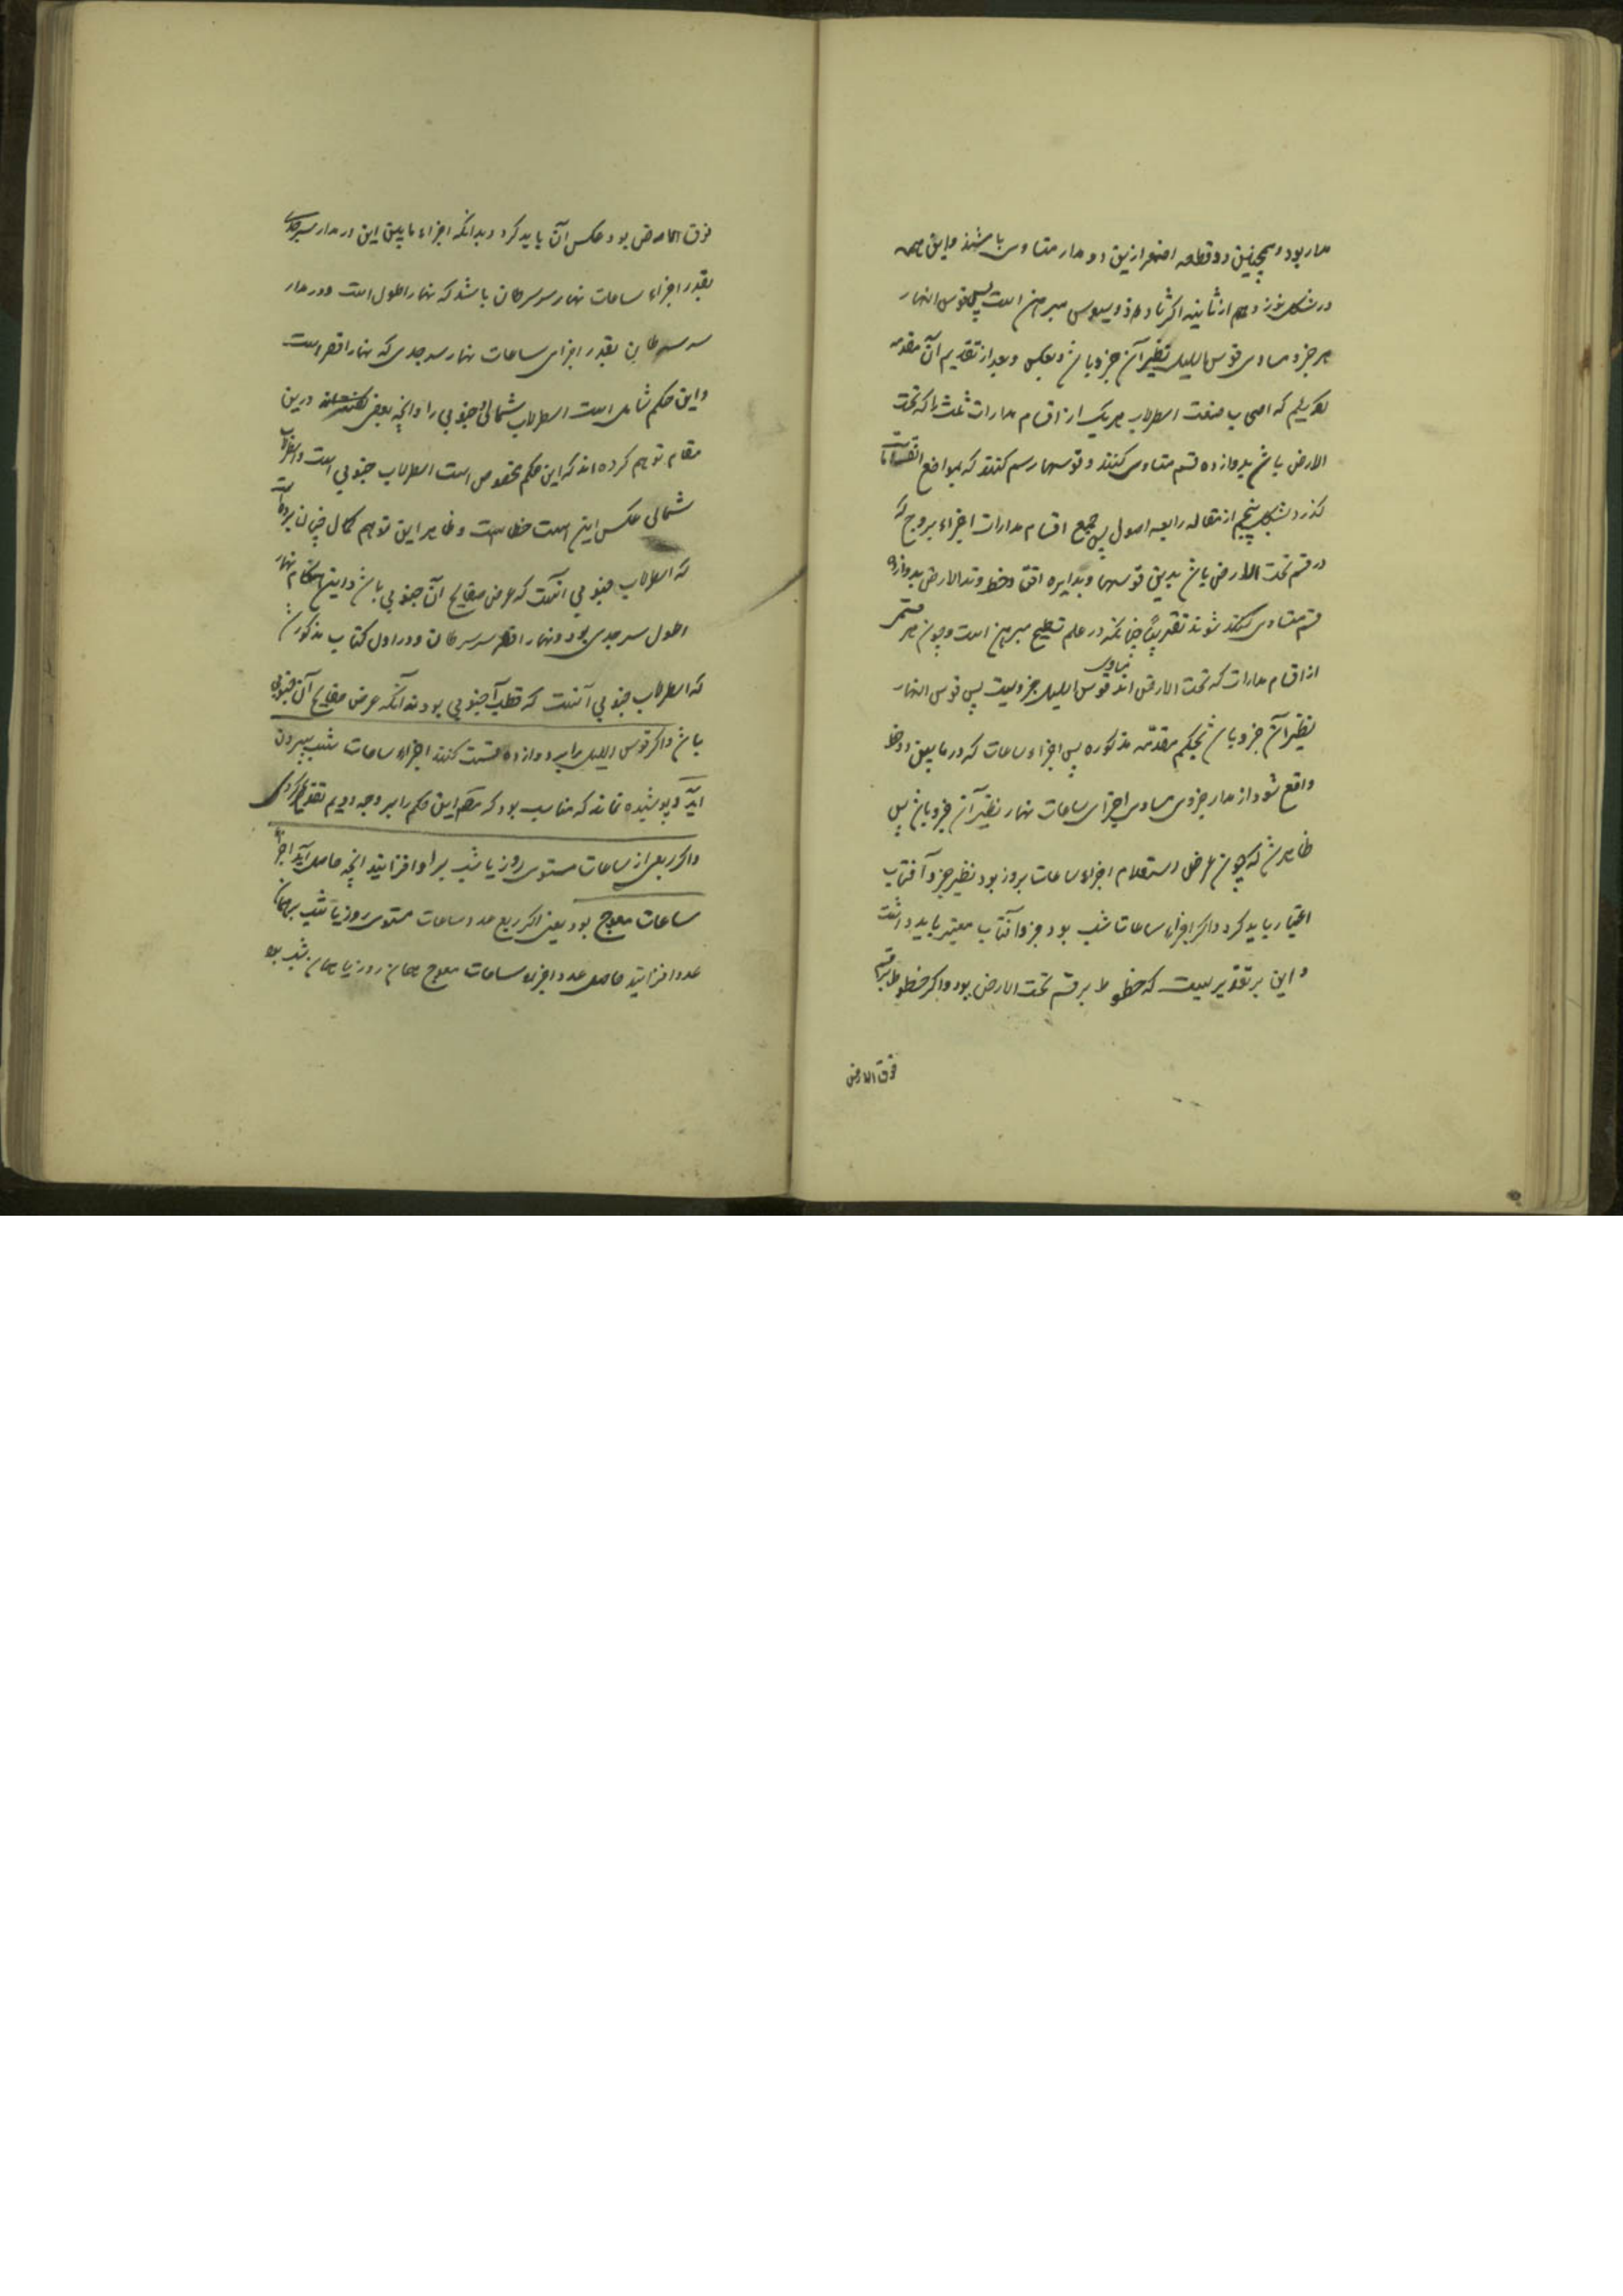 مدار بود و همچنین دو قطعه اصغر ازین دو مدار متساوی باشند و این همه
در شکل نوزدهم از ثانیه اکر ثاوذوسیوس مبرهن است پس قوس النهار
هر جزو مساوی قوس اللیل نظیر آن جزو باشد و بعکس و بعد از تقدیم آن مقدمه
گوییم که اصحاب صنعت اسطرلاب هر یک از اقسام مدارات ثلث را که تحت
الارض باشد بدوازده قسم متساوی کنند و قوسها رسم کنند که بمواضع انقسامات
گذرد بشکل پنجم از مقاله رابعه اصول پس جمیع اقسام مدارات اجزاء بروج که
در قسم تحت الارض باشد بدین قوسها و بدایره افق و خط وتد الارض بدوازده
قسم متساوی شوند تقریباً چنانکه در علم تسطیح مبرهن است و چون هر قسمی
از اقسام مدارات که تحت الارض اند قوس اللیل جزویست پس قوس النهار
نظیر آن جزو باشد بحکم مقدمه مذکوره پس اجزاء ساعات که در مابین دو خط
واقع شود از مدار جزوی مساوی اجزای ساعات نهار نظیر آن جزو باشد پس
ظاهر شد که چون غرض استعلام اجزاء ساعات بروز بود نظیر جزو آفتاب
اعتبار باید کرد و اگر اجزاء ساعات شب بود جزو آفتاب معتبر باید داشت
و این بر تقدیریست که خطوط بر قسم تحت الارض بود و اگر خطوط بر قسم
فوق الارض
فوق الارض بود عکس آن باید کرد و بدانکه اجزاء مابین این در مدار سر جدی
بقدر اجزاء ساعات نهار سر سرطان باشد که نهار اطول است و در مدار
سر سرطان بقدر اجزای ساعات نهار سر جدی که نهار اقصر است
و این حکم شامل است اسطرلاب شمالی و جنوبی را و آنچه بعضی درین
مقام توهم کرده اند که این حکم مخصوص است اسطرلاب جنوبی است و اسطرلاب
شمالی عکس این است خطاست و ظاهر این توهم کمال چنان برده است
که اسطرلاب جنوبی آنست که عرض صفایح آن جنوبی باشد و درین هنگام نهار
اطول سر جدی بود و نهار اقصر سر سرطان و در اول کتاب مذکور شد
که اسطرلاب جنوبی آنست که قطب آن جنوبی بود نه آنکه عرض صفایح آن جنوبی
باشد و اگر قوس اللیل را بر دوازده قسمت کنند اجزاء ساعات شب بیرون
آید و پوشیده نماند که مناسب بود که این حکم را بر وجه دویم تقدیم کردی
و اگر ربعی از ساعات مستوی روز یا شب بر او افزایند آنچه حاصل آید اجزاء
ساعات معوج بود یعنی اگر ربع عدد ساعات مستوی روز یا شب بر همان
عدد افزایند حاصل عدد اجزاء ساعات معوج همان روز یا همان شب بود